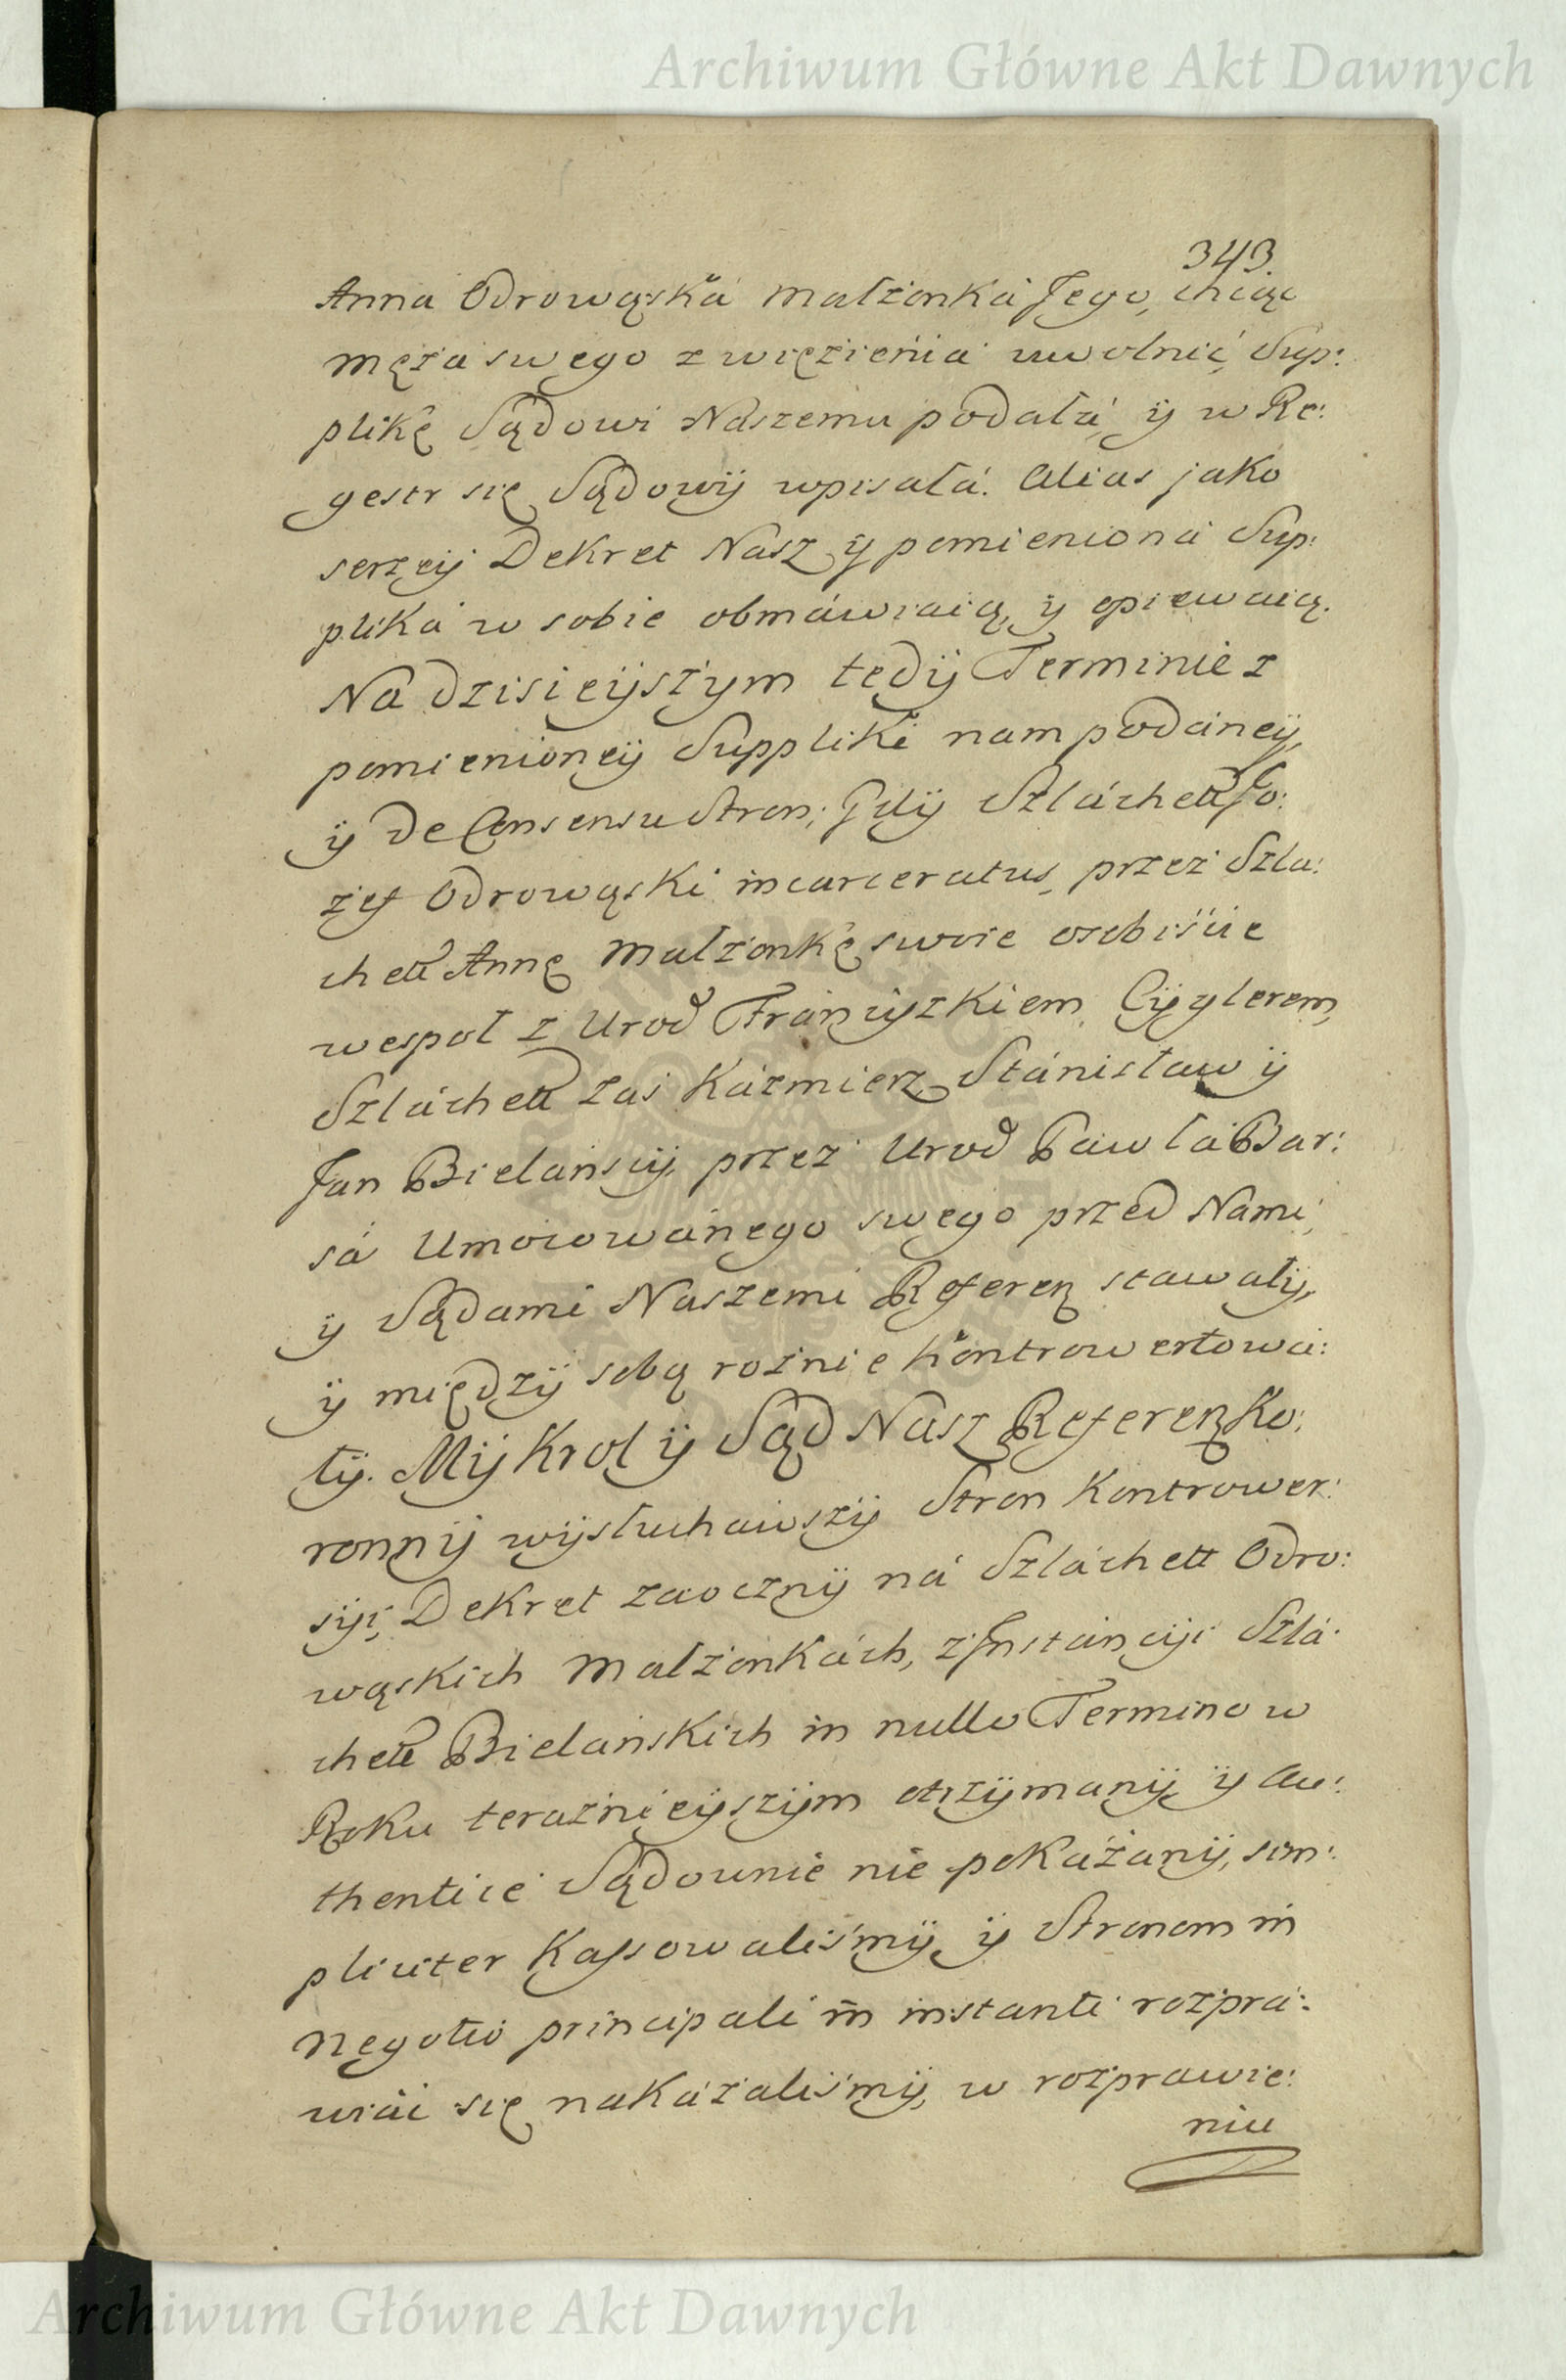 Archiwum Główne Akt Dawnych
343.
Anna Odrowąska małżonka Jego, chcąc
męża swego z więzienia uwolnić, Sup:
plikę Sądowi Naszemu podała, ÿ w Re:
gestr się Sądowÿ wpisałá. Alias jako
serzeÿ Dekret Nasz ÿ pomieniona Sup:
pliká w sobie obmáwiaią, ÿ opiewaią.
Ná dzisieÿszym tedÿ Terminie z
pomienioneÿ Suppliki nam podáneÿ,
ÿ de Consensu Stron; Gdÿ Szláchett Jo:
zef Odrowąski incarceratus, przez Szla:
chett Annę Małżonkę swoie osobiście
wespoł z Urod Franciszkiem Cÿglerem,
Szláchett zaś Kázmierz, Stánisław ÿ
Jan Bielánscÿ, przez Urod Pawłá Bar:
sá Umocowánego swego przed Nami,
ÿ Sądami Naszemi Referen stawalÿ,
ÿ międzÿ sobą rożnie kontrowertowa:
lÿ. Mÿ Krol ÿ Sąd Nasz Referen Ko:
ronnÿ wÿsłuchawszÿ Stron Kontrower:
sÿi, Dekret zaocznÿ ná Szláchett Odro:
wąskich Małżonkách, z Jnstáncÿi Szlá:
chett Bielánskich in nullo Termino w
Roku teraznieÿszÿm otrzÿmanÿ, ÿ Au:
thentice Sądownie nie pokázanÿ, sim:
pliciter Kassowaliśmÿ, ÿ Stronom in
Negotio principali in instanti rozprá:
wiáć się nakázaliśmÿ, w rozprawie:
niu
Archiwum Główne Akt Dawnych